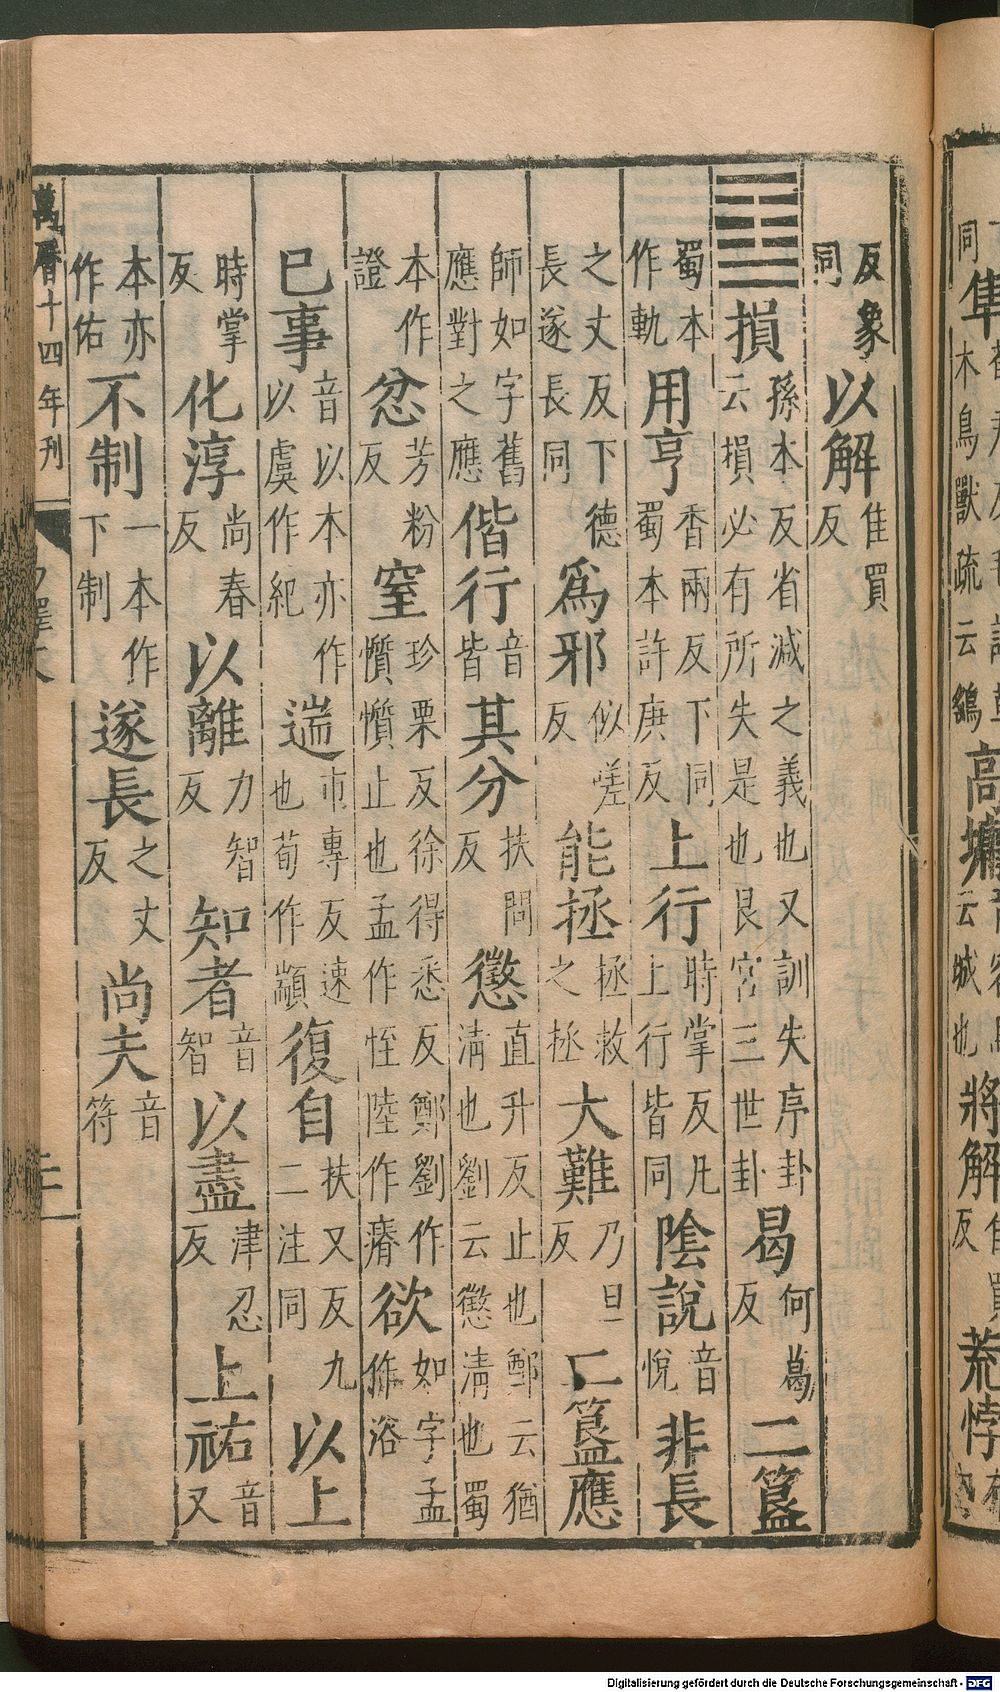 同隼木鳥獸疏云鷂高墉云城也將解反荒悖
反象同以解隹買反
䷨損孫本反省減之義也又訓失序卦云損必有所失是也艮宮三世卦曷何葛反二簋
蜀本作軌用亨香兩反下同蜀本許庚反上行時掌反凡上行皆同陰說音悅非長
之丈反下德長遂長同爲邪似嗟反能拯拯救之拯大難乃旦反二簋應
師如字舊應對之應偕行音皆其分扶問反懲直升反止也鄭云猶清也劉云懲清也蜀
本作證忿芳粉反窒珍栗反徐得悉反鄭劉作懫懫止也孟作恎陸作瘠欲如字孟作浴
已事音以本亦作以虞作紀遄市專反速也荀作顓復自扶又反九二注同以上
時掌反化淳尚春反以離力智反知者音智以盡津忍反上祐音又
本亦作佑不制一本作下制遂長之丈反尚夫音符
萬曆十四年刊
Digitalisierung gefördert durch die Deutsche Forschungsgemeinschaft - DFG